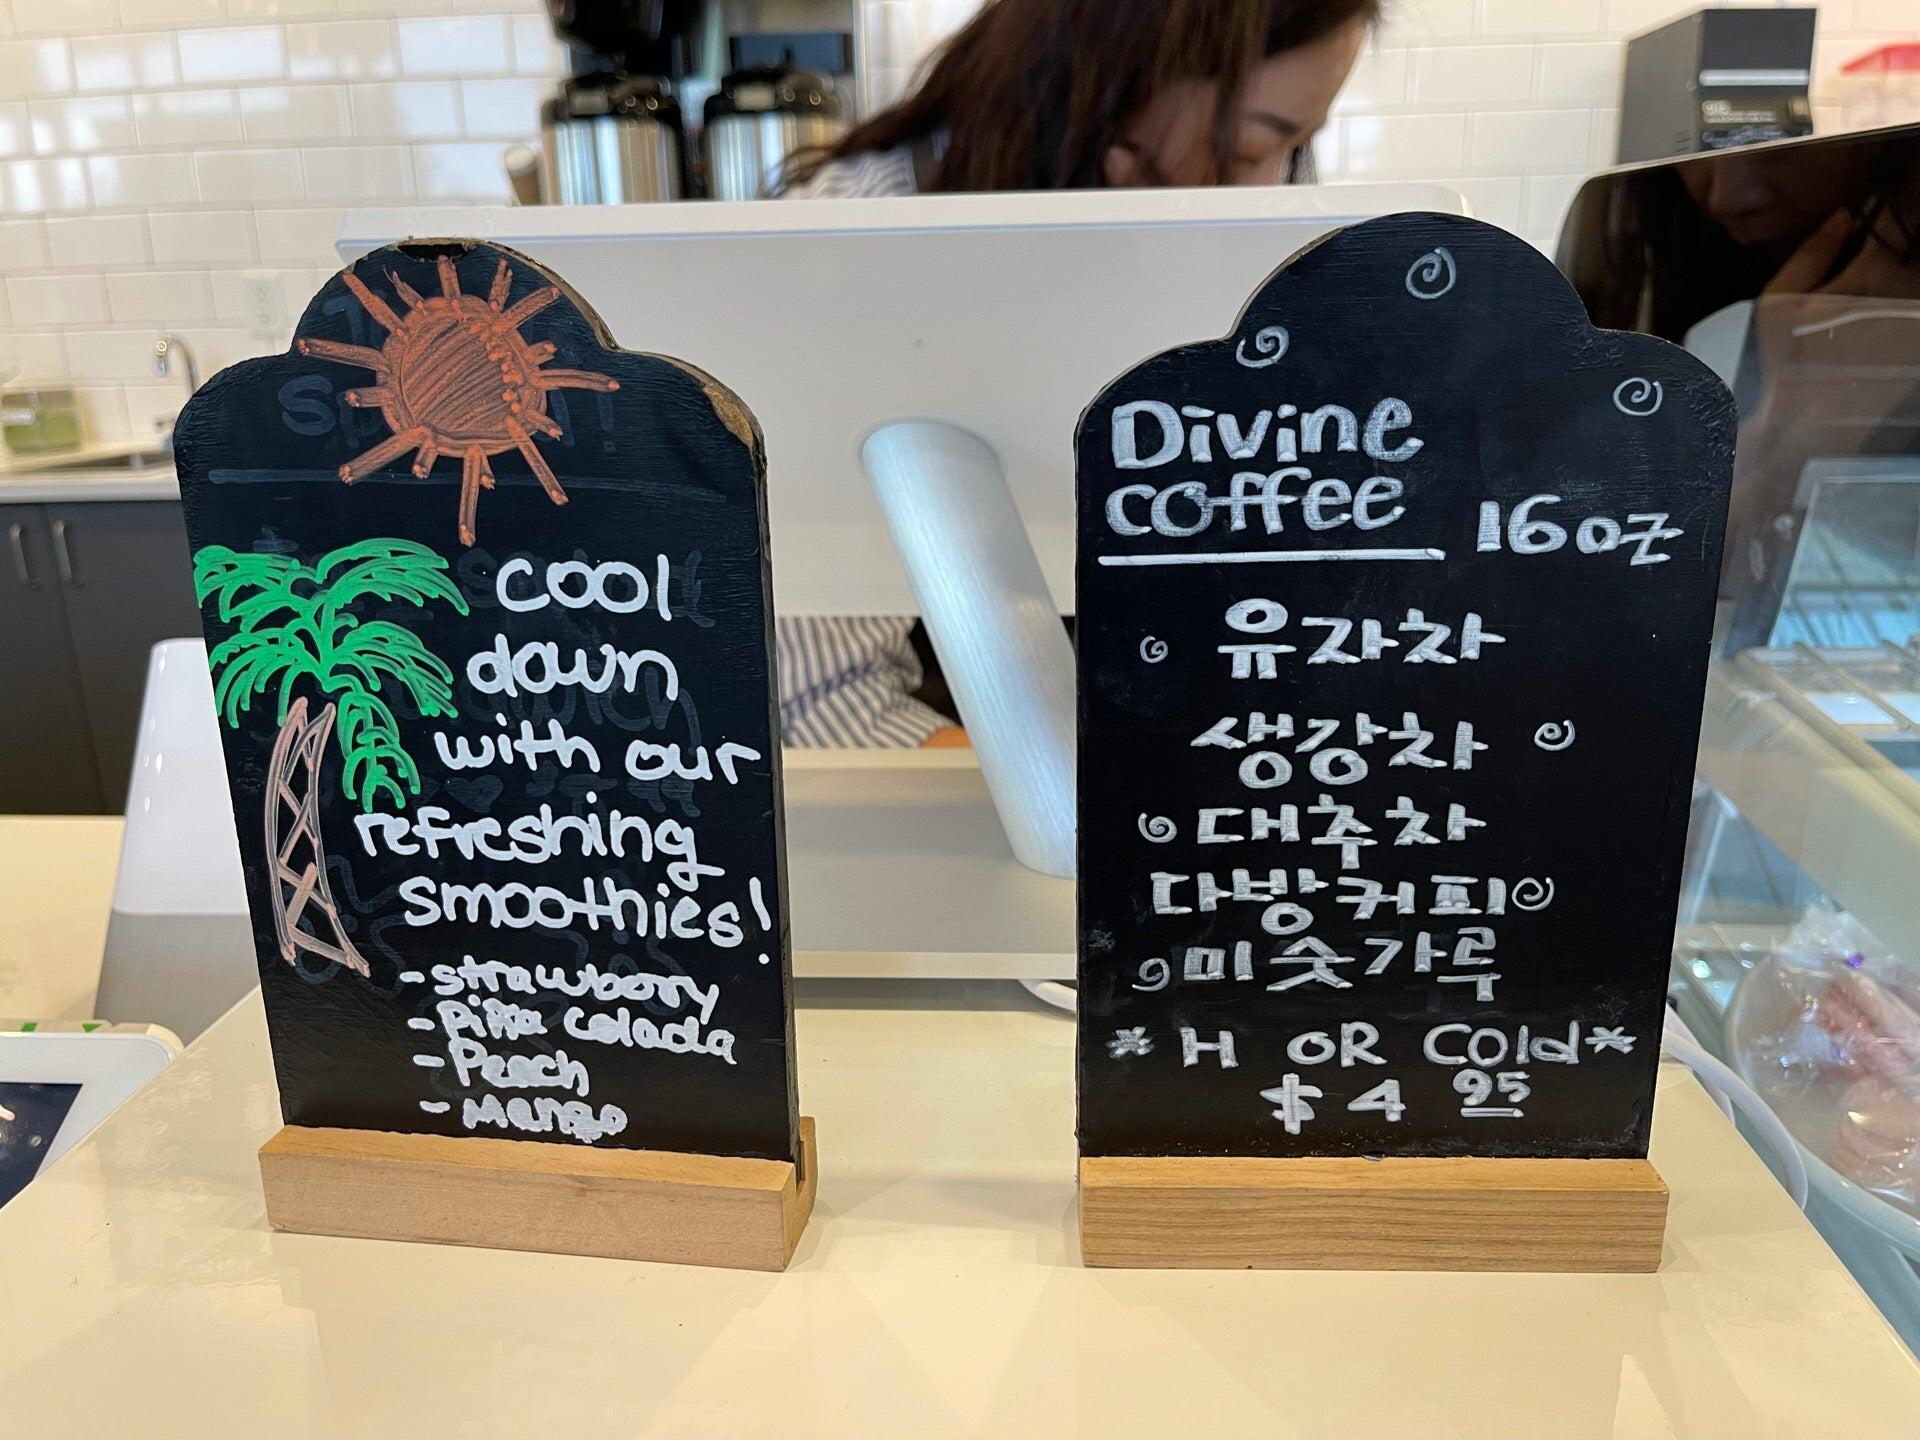 cool
down
with our
refreshing
smoothies!
- strawberry
- Piña colada
- Peach
- Mango
Divine
coffee 16oz
유자차
생강차
대추차
다방커피
미숫가루
* H OR Cold *
$4 95